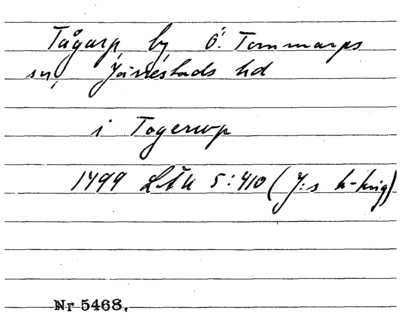 Tågarp, by Ö. Tommarps
sn, Järrestads hd
i Togerup
1499 LÅU 5:410 (J:s h-krig)
Nr 5468.